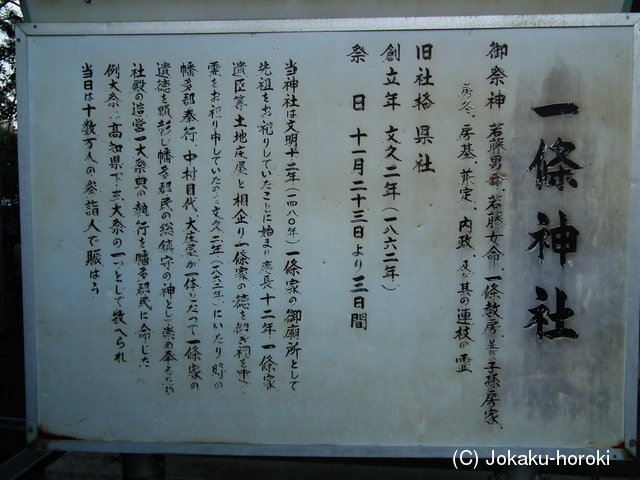 一條神社
御祭神 若藤男命、若藤女命、一條教房、並の子孫房家、
房冬、房基、兼定、内政、及其の連枝の霊
旧社格 県社
創立年 文久二年(一八六二年)
祭 日 十一月二十三日より三日間
当神社は文明十二年(一四八〇年)一條家の御廟所として
先祖をお祀りしていたことに始まり慶長十二年一條家
遺臣等土地庄屋と相企り一條家の徳を仰ぎ祠を建て
霊をお祀り申していたが文久二年(一八六二年)にいたり時の
幡多郡奉行、中村目代、大庄屋が一体となって一條家の
遺徳を顕彰し幡多郡民の総鎮守の神として崇め奉るため
社殿の造営一大祭典の執行を幡多郡民に命じた
例大祭は高知県下三大祭の一つとして数へられ
当日は十数万人の参詣人で賑はう
(C) Jokaku-horoki